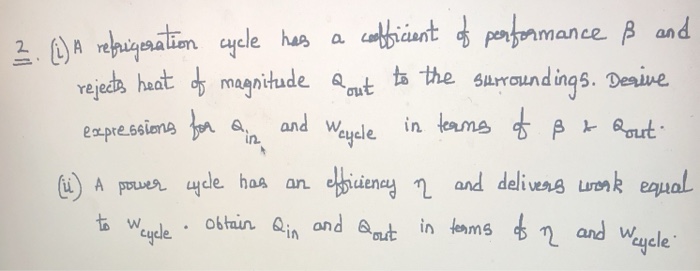 2. (i) A refrigeration cycle has a coefficient of performance β and
rejects heat of magnitude Qout to the surroundings. Derive
expressions for Qin and Wcycle in terms of β & Qout.
(ii) A power cycle has an efficiency η and delivers work equal
to Wcycle. Obtain Qin and Qout in terms of η and Wcycle.